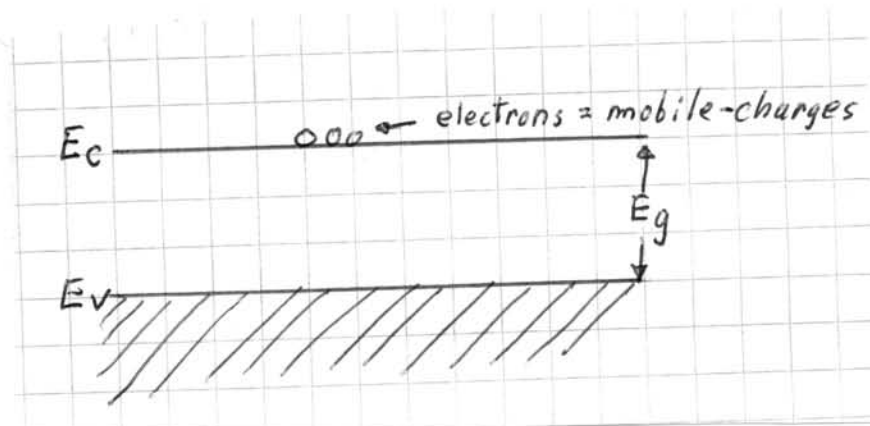 electrons = mobile-charges
Ec
Eg
Ev